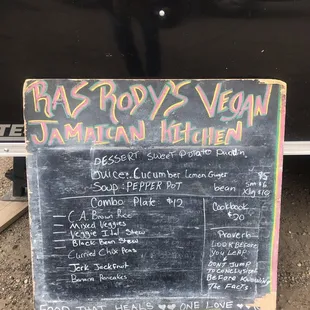 RAS RODY'S VEGAN
JAMAICAN KITCHEN
DESSERT SWEET POTATO PUDDIN
JUICE: CUCUMBER LEMON GINGER $5
SOUP: PEPPER POT bean SM $6
XLg $10
COMBO PLATE $12
C.A. BROWN RICE
MIXED VEGGIES
VEGGIE ITAL STEW
BLACK BEAN STEW
CURRIED CHICK PEAS
JERK JACKFRUIT
BANANA PANCAKES
COOKBOOK
$20
PROVERB
LOOK BEFORE
YOU LEAP
DON'T JUMP
TO CONCLUSIONS
BEFORE KNOWING
THE FACTS
FOOD THAT HEALS ONE LOVE